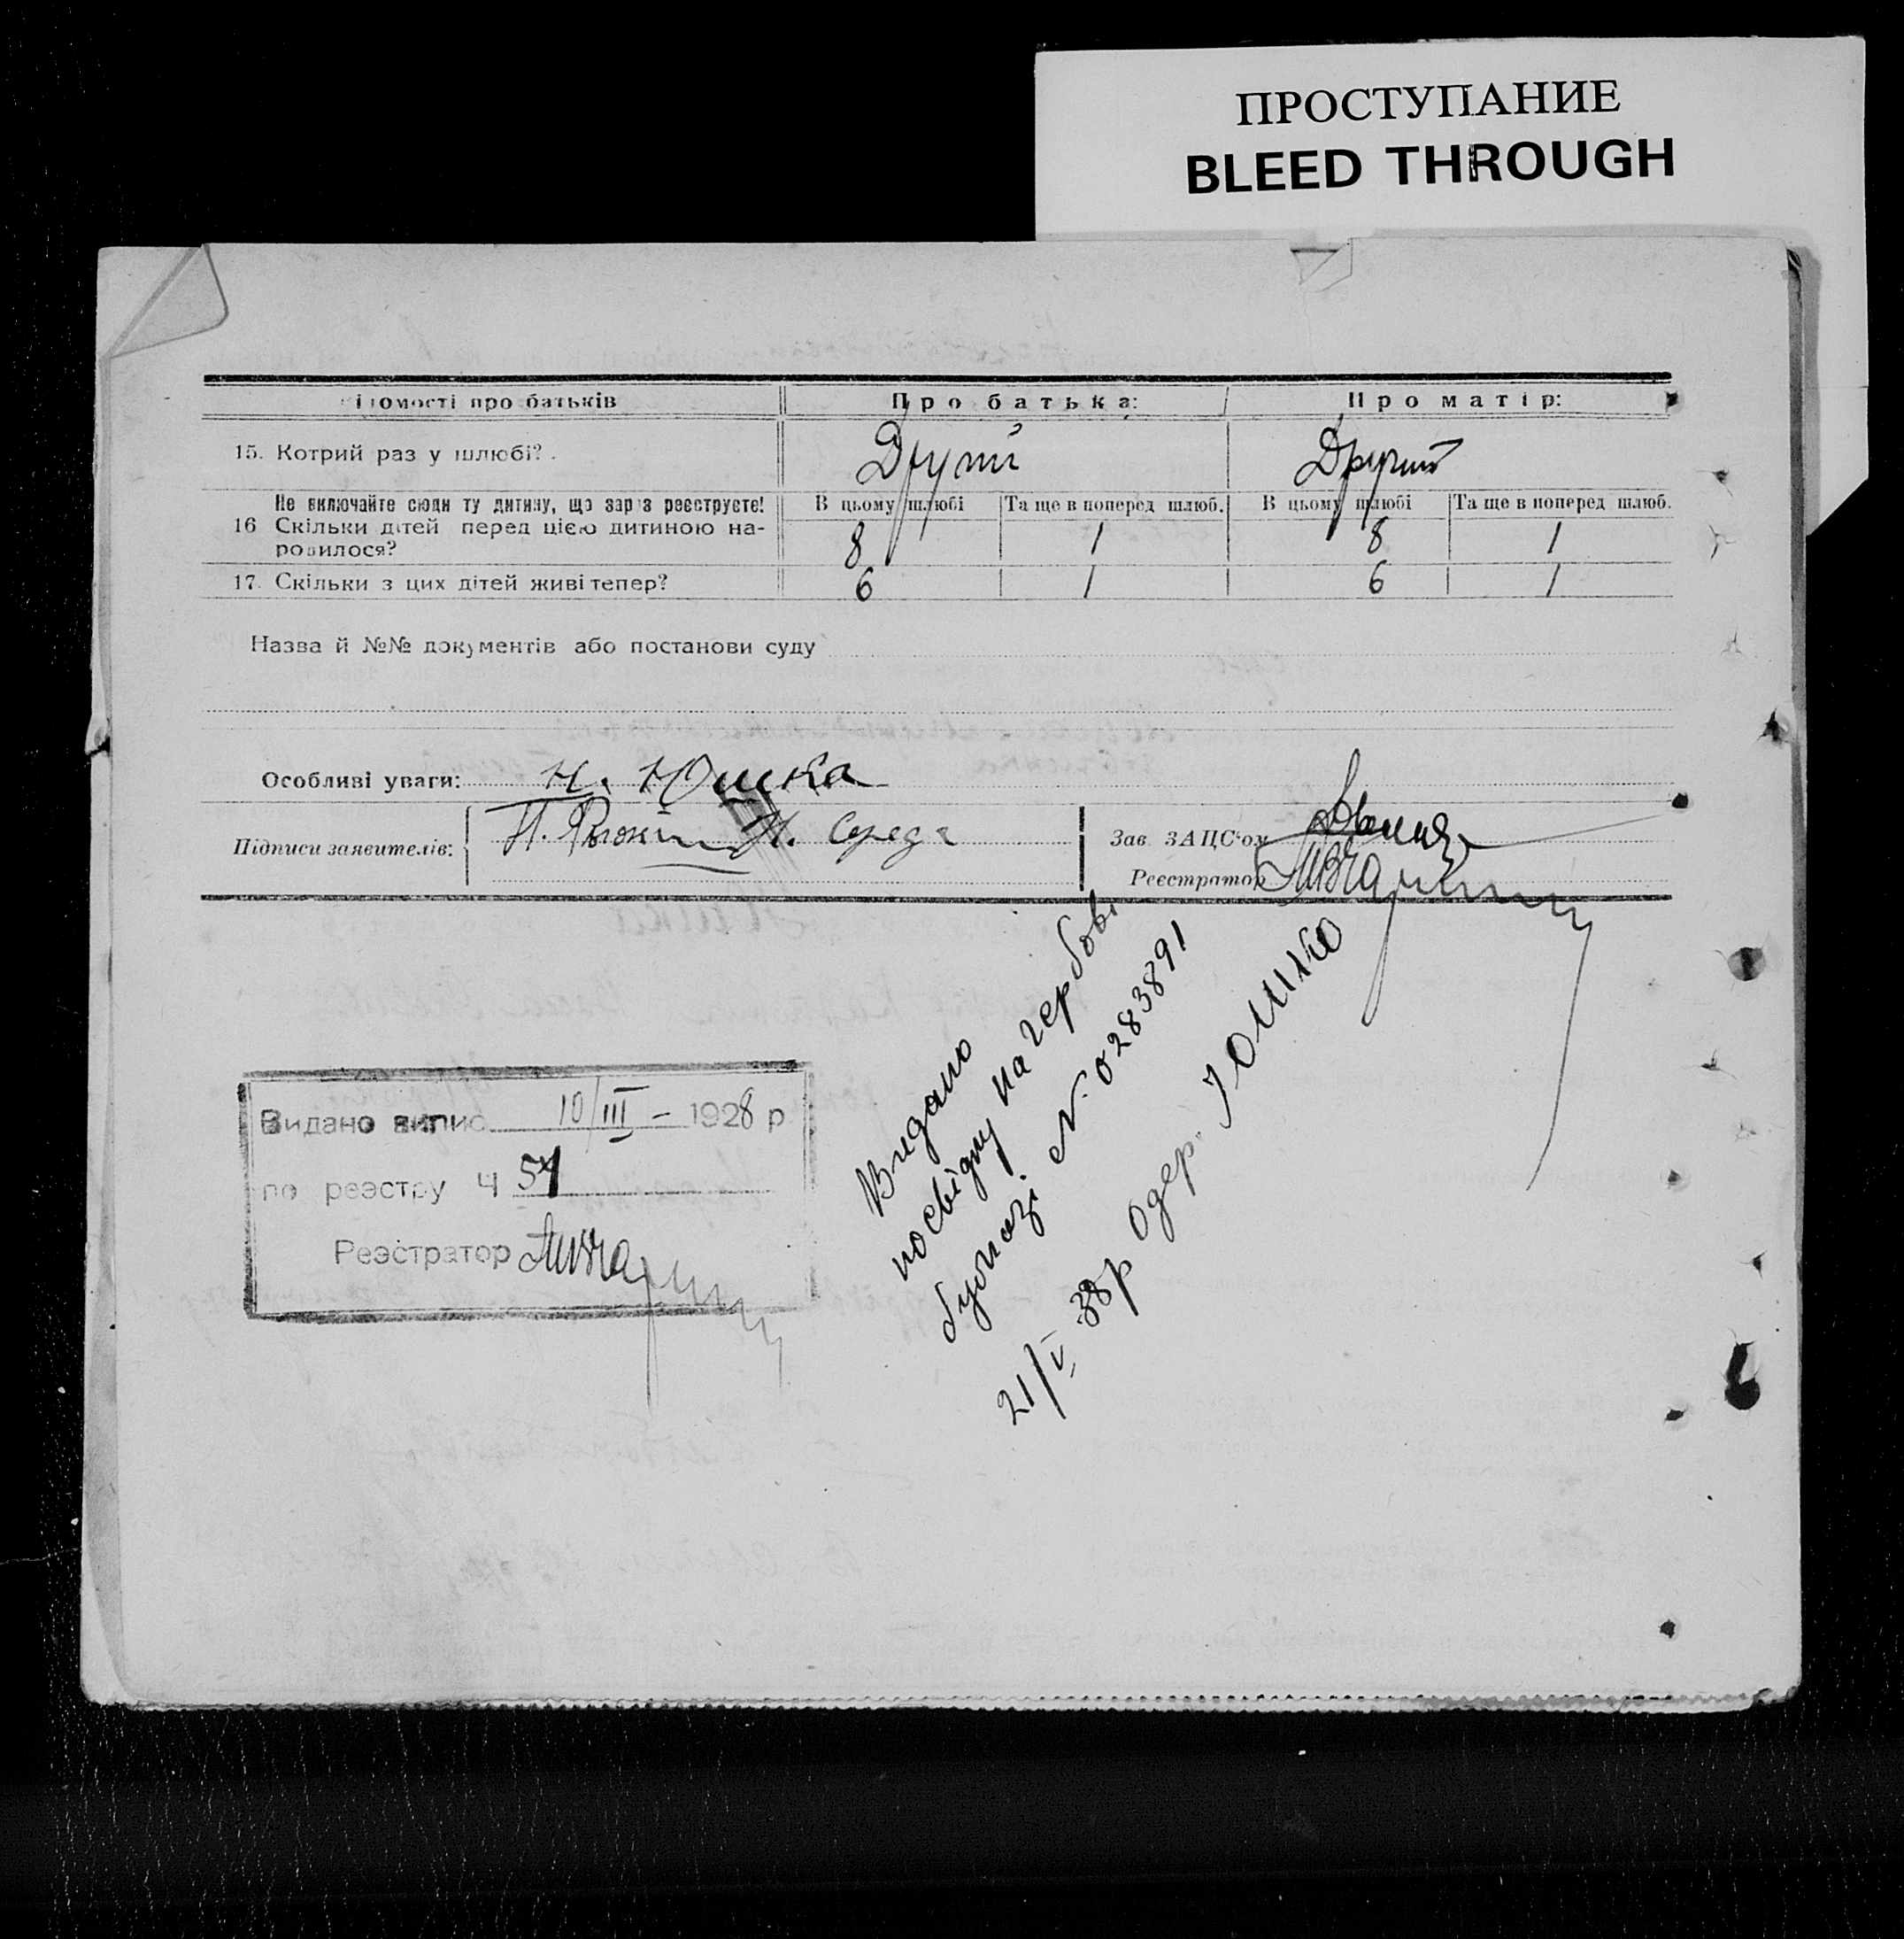 ПРОСТУПАНИЕ
BLEED THROUGH
ідомості про батьків Про батька: Про матір:
15. Котрий раз у шлюбі? Другий Другий
Не включайте сюди ту дитину, що зараз реєструєте! В цьому шлюбі Та ще в поперед шлюб. В цьому шлюбі Та ще в поперед шлюб.
16 Скільки дітей перед цією дитиною на-
родилося? 8 1 8 1
17. Скільки з цих дітей живі тепер? 6 1 6 1
Назва й №№ документів або постанови суду
Особливі уваги: Н. Юшка
Підписи заявителів: П. Н. Середа
Зав. ЗАЦС‘ом
Реєстратор
Видано
посвідку на гербові
бумазі N. 0283891
21/V 38р Одер. Юшко
Видано випис 10/III – 1928 р
по реэстру Ч 54
Реэстратор